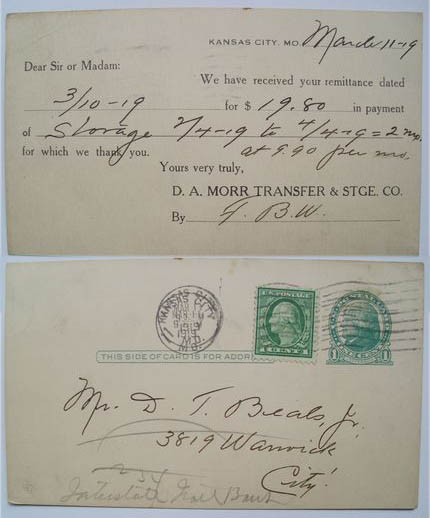 KANSAS CITY, MO. March 11-19
Dear Sir or Madam:
We have received your remittance dated
3/10-19 for $ 19.80 in payment
of Storage 2/4-19 to 4/4-19 = 2 mo.
for which we thank you. at 9.90 per mo.
Yours very truly,
D. A. MORR TRANSFER & STGE. CO.
By T. B. W.
KANSAS CITY
MO.
1919
U.S. POSTAGE
1 CENT 1
THIS SIDE OF CARD IS FOR ADDR
Mr. D. T. Beals, Jr.
3819 Warwick
City.
234
Interstate Natl Bank